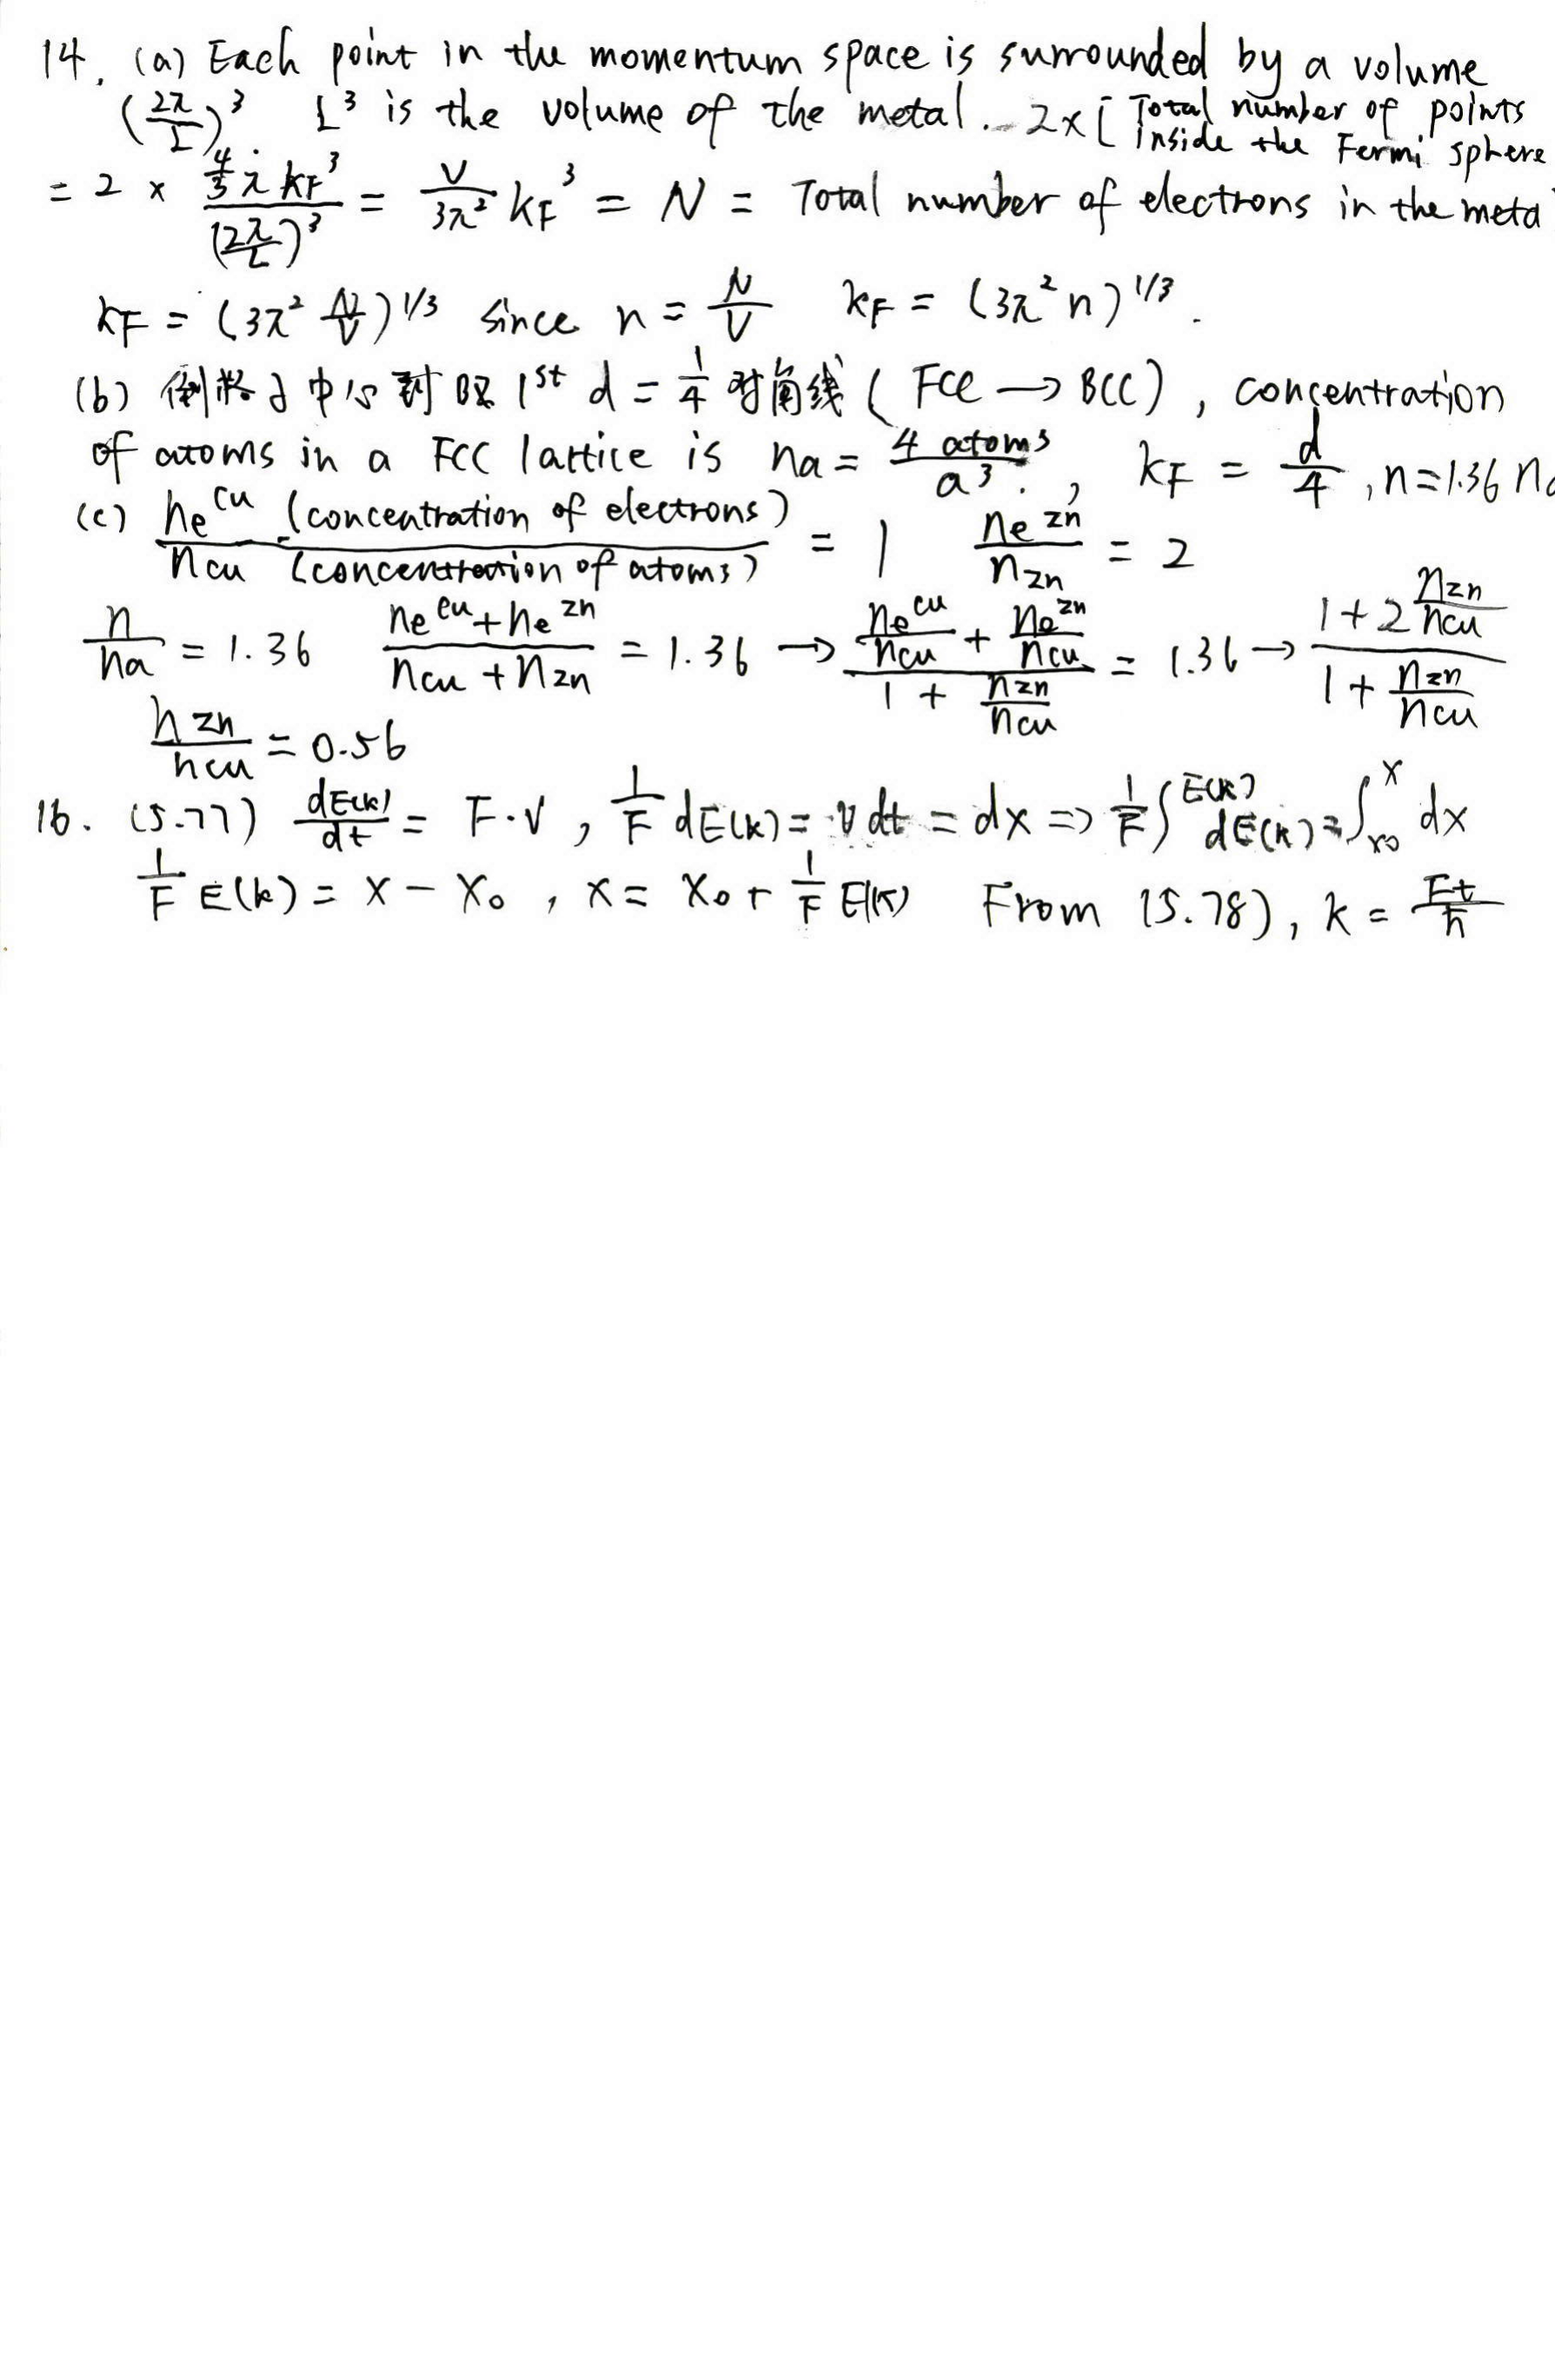 14. (a) Each point in the momentum space is surrounded by a volume
(2π/L)³. L³ is the volume of the metal. 2×[Total number of points inside the Fermi sphere
= 2 × (4/3 π kF³)/(2π/L)³ = V/3π² kF³ = N = Total number of electrons in the meta
kF = (3π² N/V)^1/3 since n = N/V kF = (3π²n)^1/3.
(b) 倒格子中心到BZ 1st d = 1/4 对角线 (FCC → BCC), concentration
of atoms in a FCC lattice is na = 4 atoms/a³., kF = d/4, n=1.36 na
(c) ne^cu (concentration of electrons)/ncu (concentration of atoms) = 1 ne^zn/nzn = 2
n/na = 1.36 (ne^cu + ne^zn)/(ncu + nzn) = 1.36 → (ne^cu/ncu + ne^zn/ncu)/(1 + nzn/ncu) = 1.36 → (1+2 nzn/ncu)/(1 + nzn/ncu)
nzn/ncu = 0.56
16. (5.77) dE(k)/dt = F·v, 1/F dE(k) = v dt = dx => 1/F ∫^E(k) dE(k) = ∫_x0^x dx
1/F E(k) = x - x₀, x = x₀ + 1/F E(k) From (5.78), k = Ft/ħ